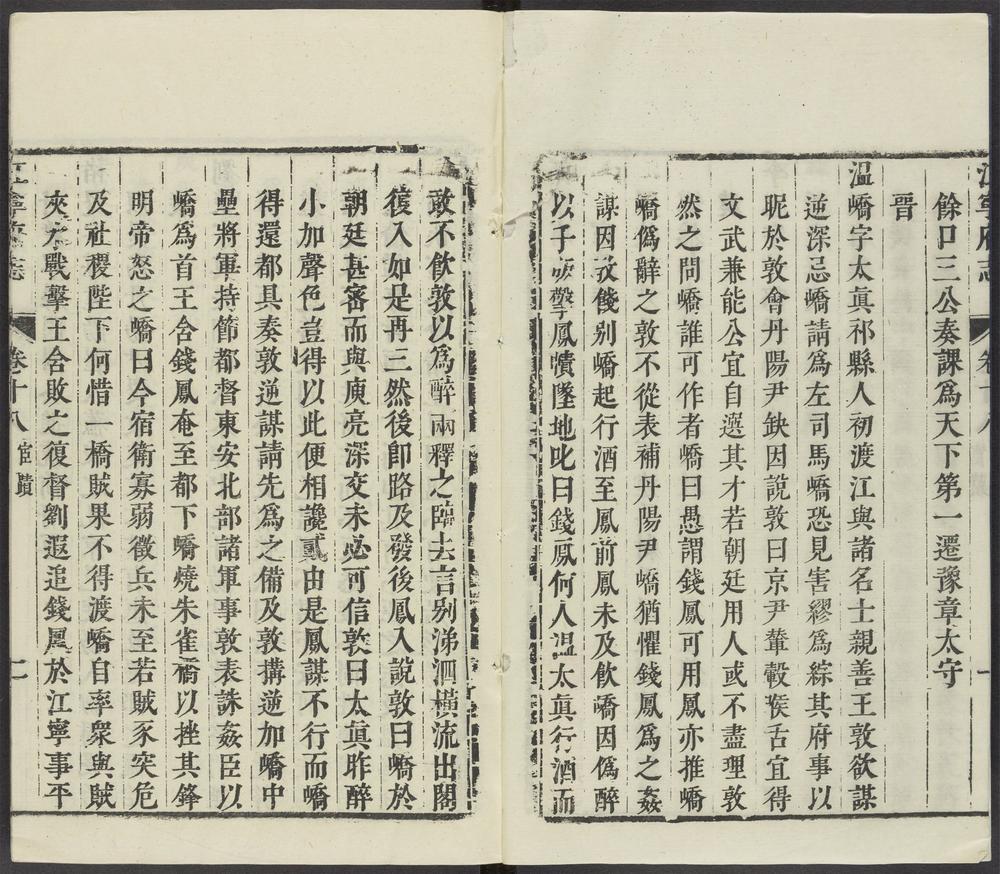 江寧府志
卷十八
一
餘口三公奏課爲天下第一遷豫章太守
晉
溫嶠字太眞祁縣人初渡江與諸名士親善王敦欲謀
逆深忌嶠請爲左司馬嶠恐見害繆爲綜其府事以
昵於敦會丹陽尹缺因說敦曰京尹輦轂喉舌宜得
文武兼能公宜自選其才若朝廷用人或不盡理敦
然之問嶠誰可作者嶠曰愚謂錢鳳可用鳳亦推嶠
嶠僞辭之敦不從表補丹陽尹嶠猶懼錢鳳爲之姦
謀因敦餞别嶠起行酒至鳳前鳳未及飮嶠因僞醉
以手擊鳳幘墜地叱曰錢鳳何人溫太眞行酒而
敢不飮敦以爲醉兩釋之臨去言别涕泗橫流出閤
復入如是再三然後卽路及發後鳳入說敦曰嶠於
朝廷甚密而與庾亮深交未必可信敦曰太眞昨醉
小加聲色豈得以此便相讒貳由是鳳謀不行而嶠
得還都具奏敦逆謀請先爲之備及敦搆逆加嶠中
壘將軍持節都督東安北部諸軍事敦表誅姦臣以
嶠爲首王含錢鳳奄至都下嶠燒朱雀桁以挫其鋒
明帝怒之嶠曰今宿衛寡弱徵兵未至若賊豕突危
及社稷陛下何惜一橋賊果不得渡嶠自率衆與賊
夾水戰擊王含敗之復督劉遐追錢鳳於江寧事平
江寧府志
卷十八 宦蹟
二